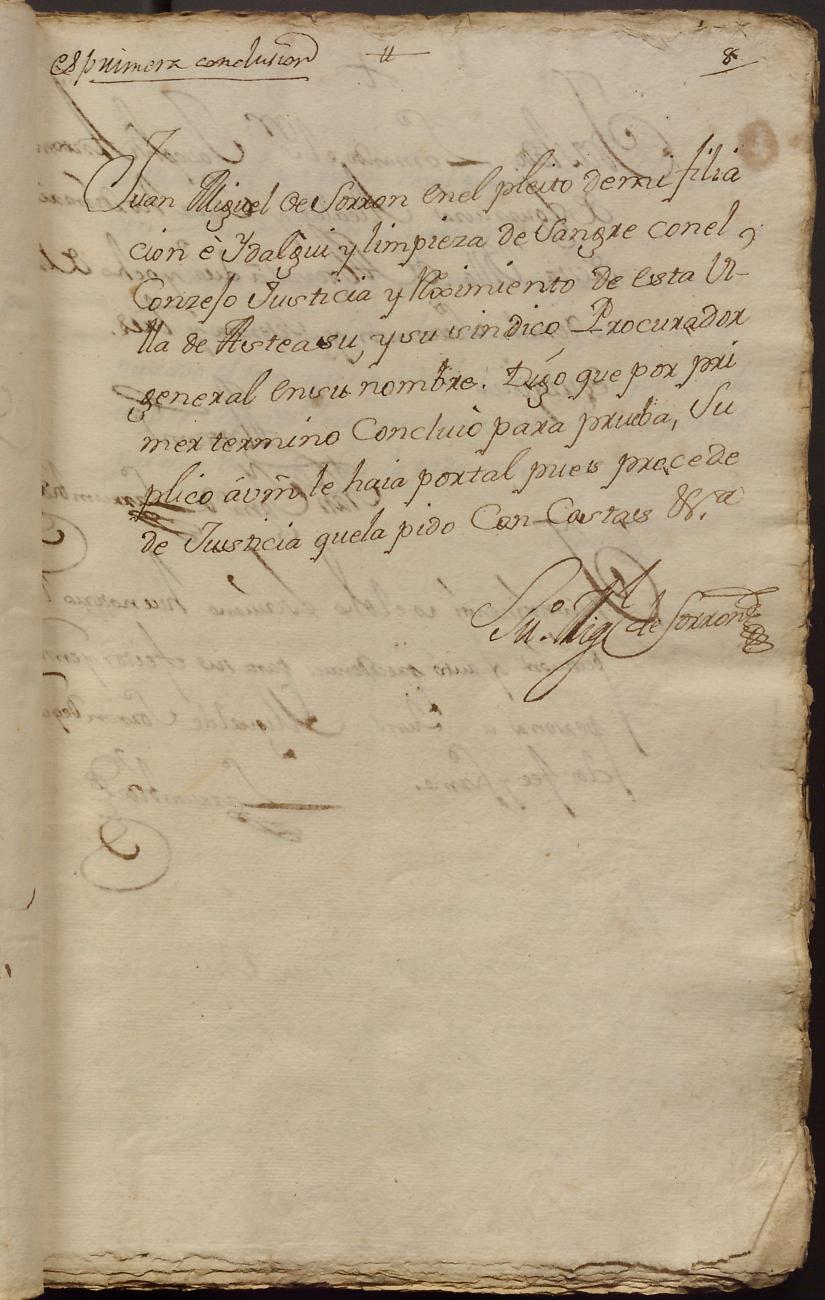 es primera conclusion # 8
Juan Miguel de Sorron en el pleito de mi filia
cion è Ydalgui y limpieza de Sangre con el
Conzejo Justicia y Reximiento de esta Vi-
lla de Asteasu, y su sindico Procurador
general en su nombre. Digo que por pri
mer termino Concluiò para prueba, Su
plico à vm̃ le haia por tal pues procede
de Justicia que la pido Con Costas &.a
Ju.o Migl de Sorron